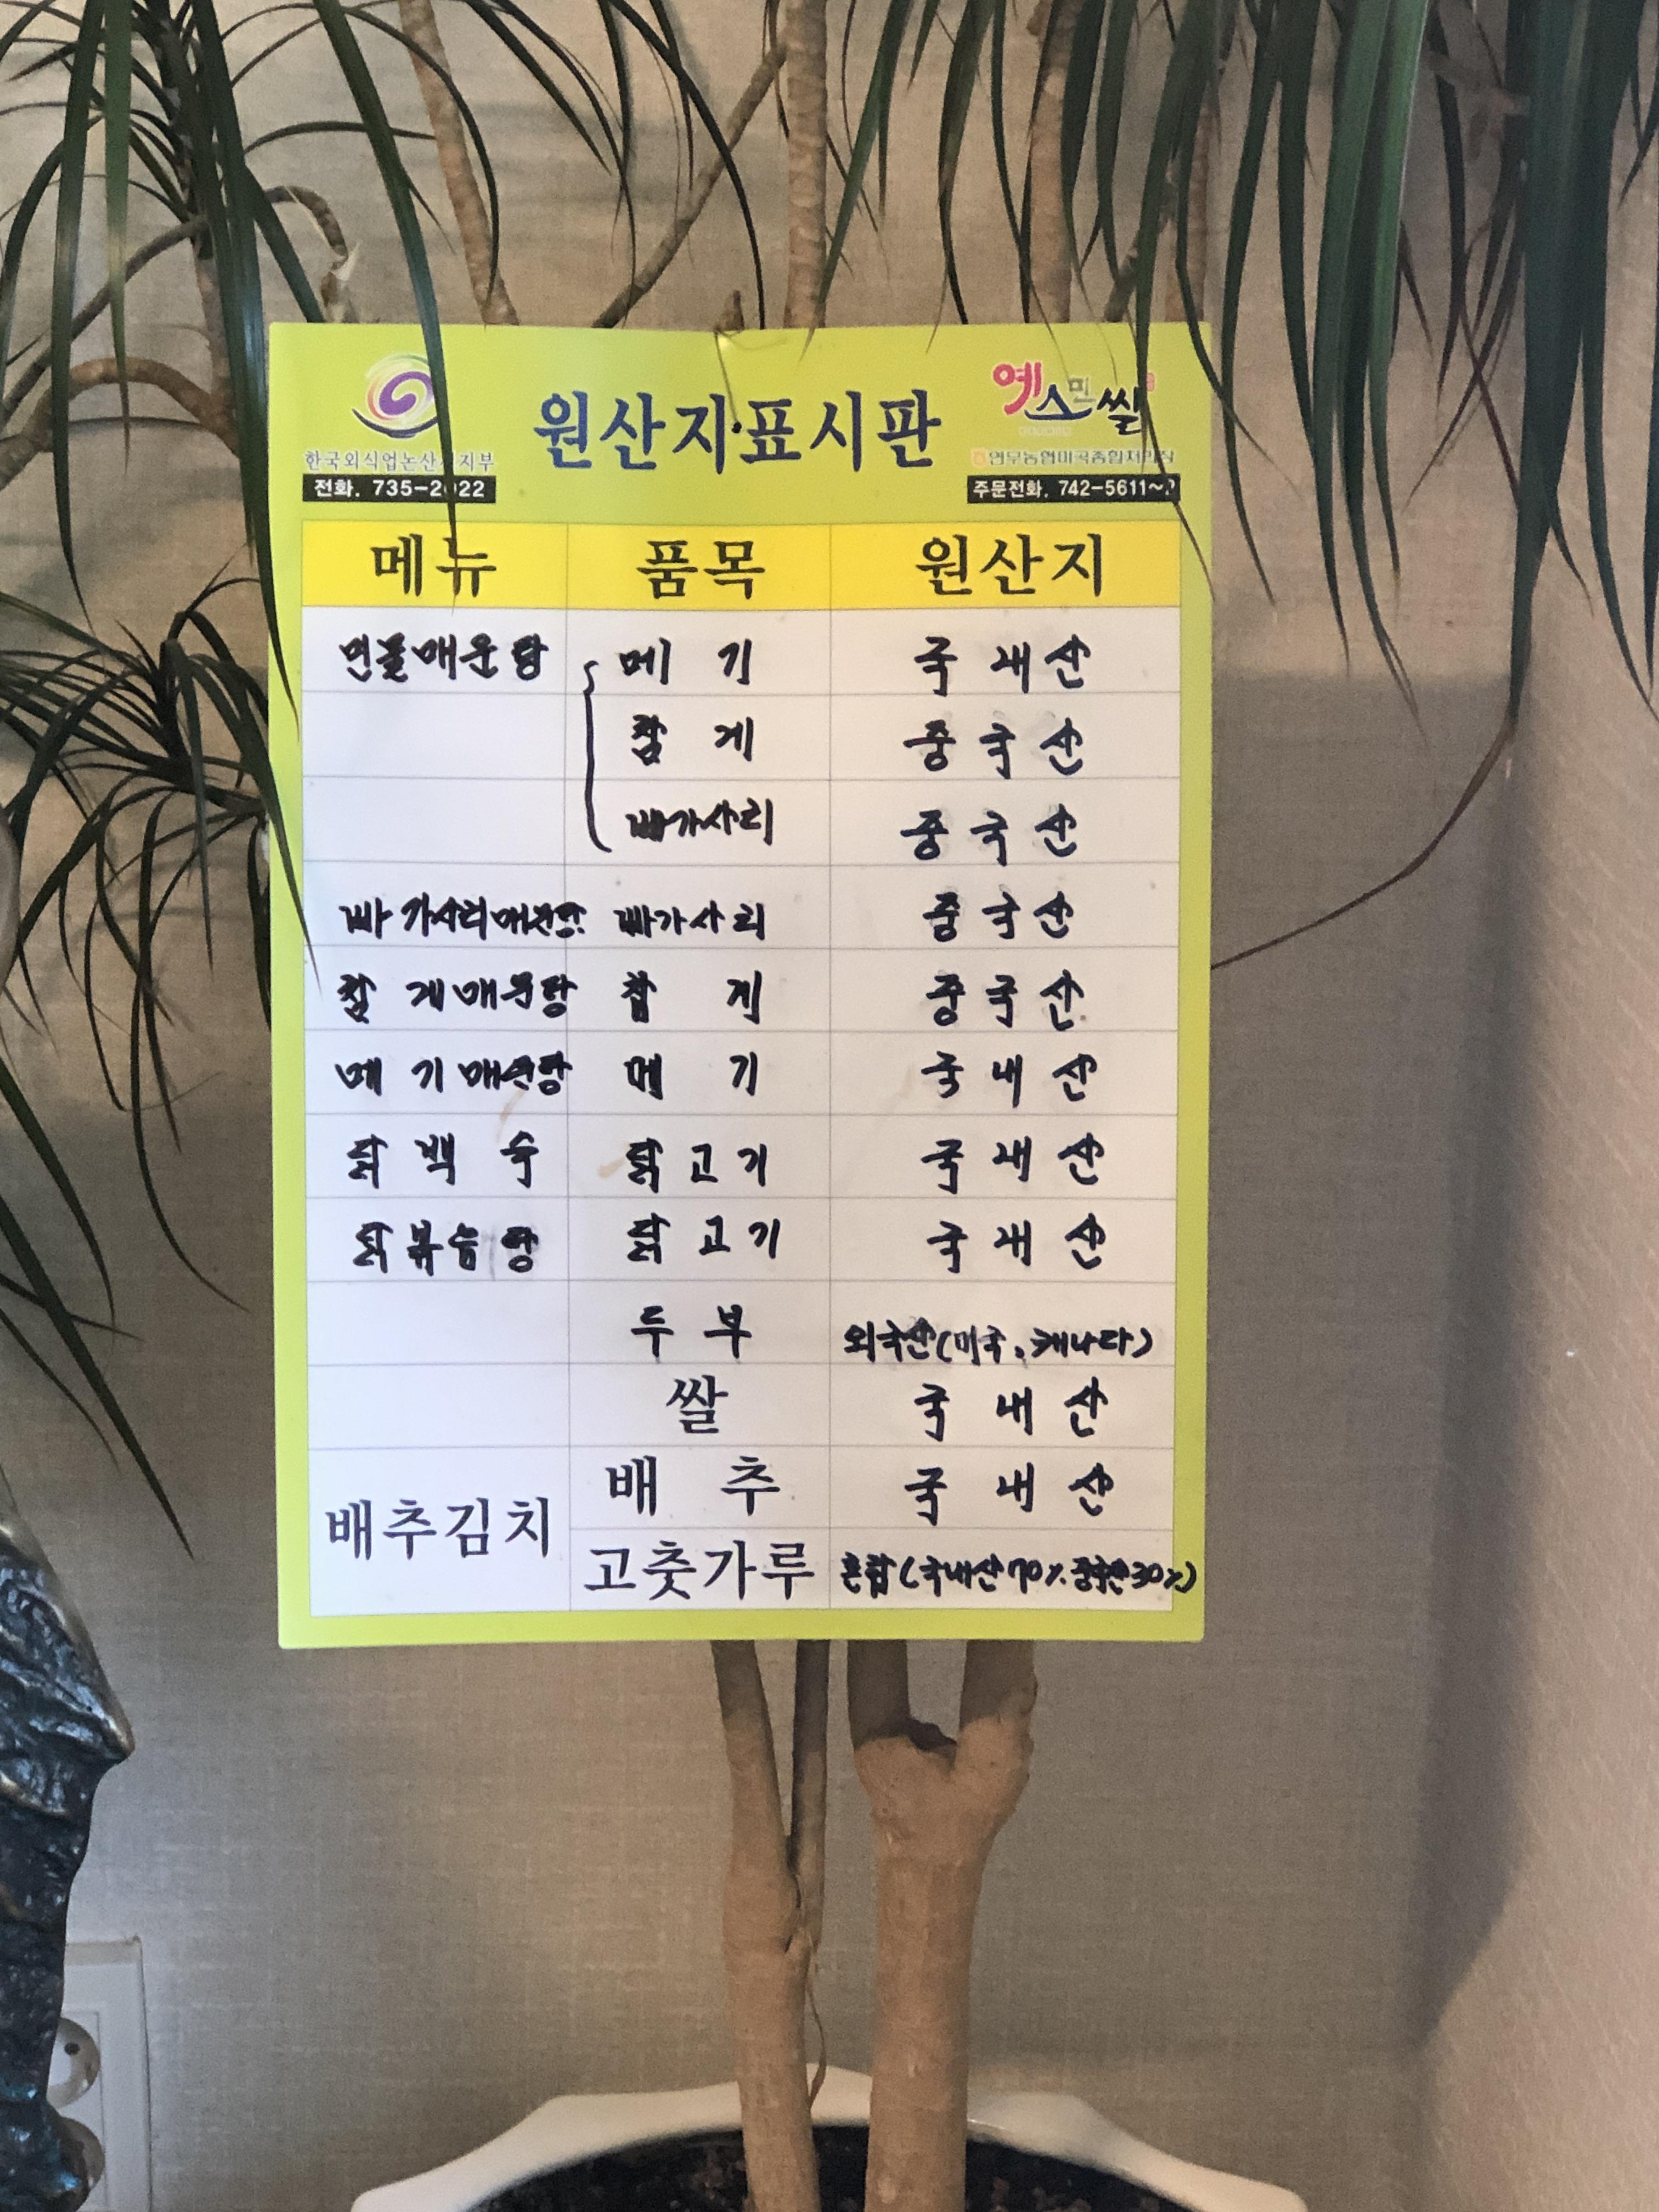 원산지표시판
한국외식업논산시지부
전화. 735-2022
예스민쌀
연무농협미곡종합처리장
주문전화. 742-5611~2
메뉴 품목 원산지
민물매운탕 메기 국내산
참게 중국산
빠가사리 중국산
빠가사리매운탕 빠가사리 중국산
참게매운탕 참게 중국산
메기매운탕 메기 국내산
닭백숙 닭고기 국내산
닭볶음탕 닭고기 국내산
두부 외국산(미국, 캐나다)
쌀 국내산
배추김치 배추 국내산
고춧가루 혼합(국내산70%.중국산30%)